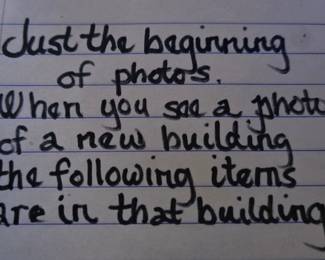 Just the beginning
of photo's.
When you see a photo
of a new building
the following items
are in that building